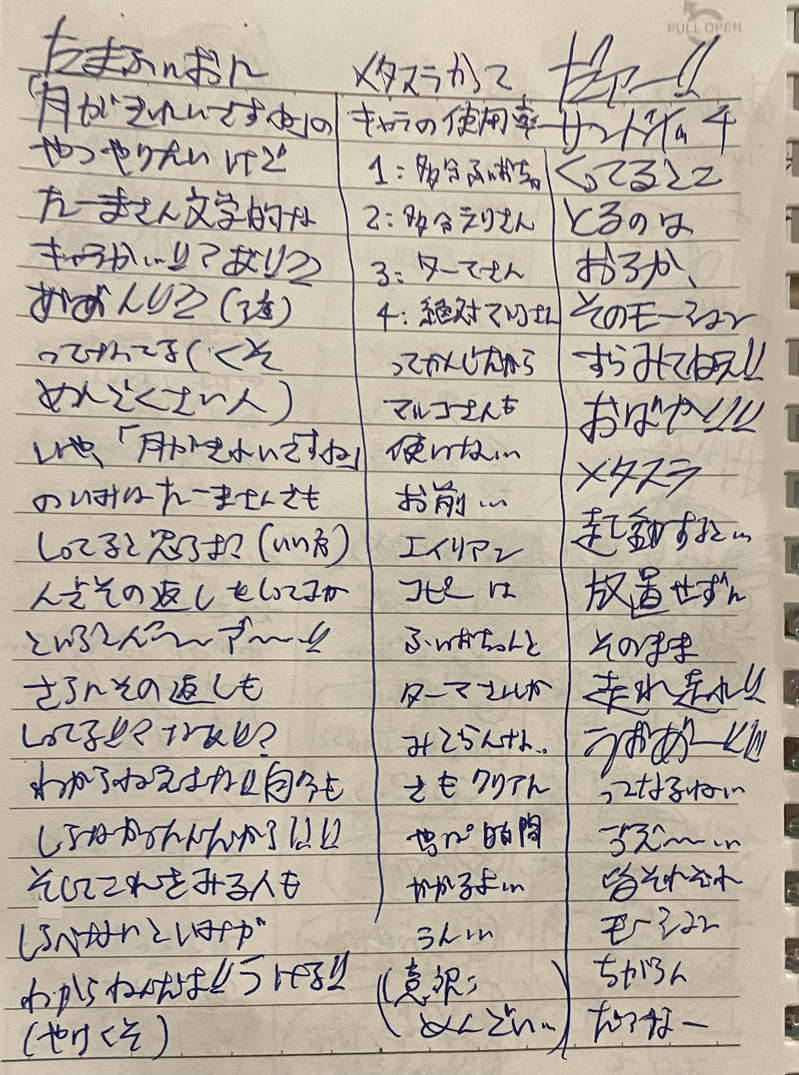 PULL OPEN
たまふぃおん
「月がきれいですね」の
やつやりたいけど
たーまさん文学的な
きゃらかい!!?ありう
めがん
ってけんてる(くそ
めんどくさい人)
いや、「月がきれいですね」
のいみはたーまさんさも
してると思うよ?(いい方)
んだその返しをしてるか
といううん〜〜ず〜〜!!
さらんその返しも
してる!!?なな!!?
わからねえよな!!自分も
しらなかったんだから!!!!
そしてこれをみる人も
しらべないといけなが
わからねんだよ!!うける!!
(やけくそ)
メタスラかって
キャラの使用率
1:多分ふぃおちゃ
2:多分えりさん
3:ターマさん
4:絶対マルコさん
ってかんじだから
マルコさんも
使いない…
お前…
エイリアン
コピーは
ふぃおちゃんと
ターマさんしか
みてらんさん..
さもクリアん
やっぱ時間
かかるよ…
うん…
(意訳:
めんどい…)
ビァー!!
サンドバル4
くってるとこ
とるのは
おろか、
そのモーション
すらみてねえ!!
おばや!!!!
メタスラ
起動すると…
放置せずん
そのまま
走れ走れ!!
うおおー!!!!
ってなるねい
ずえ〜…
皆それぞれ
モーション
ちがうん
だろなー